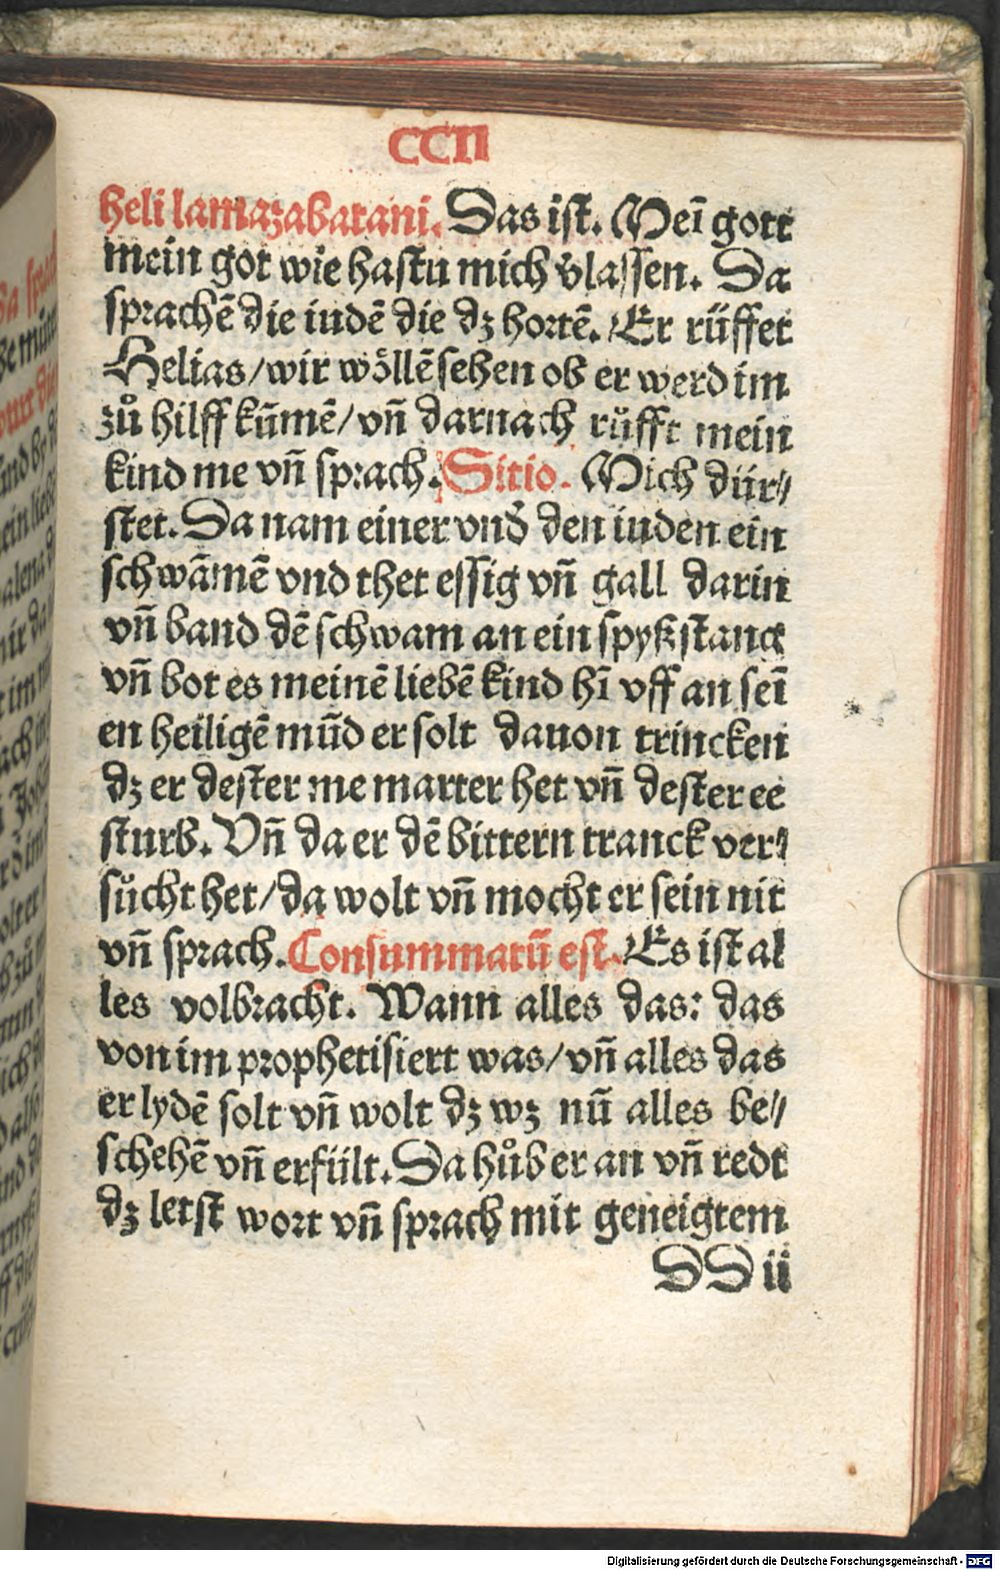 CCII
heli lamazabatani. Das ist. Meī gott
mein got wie hastu mich v̄lassen. Da
sprachē die iudē die dz hortē. Er rüffet
Helias/wir wöllē sehen ob er werd im
zů hilff kūmē/vn̄ darnach růfft mein
kind me vn̄ sprach. Sitio. Mich dür⸗
stet. Da nam einer vnd̄ den iuden ein
schwāmē vnd thet essig vn̄ gall darin
vn̄ band dē schwam an ein spyßstang
vn̄ bot es meinē liebē kind hī vff an seī
en heiligē mūd er solt dauon trincken
dz er dester me marter het vn̄ dester ee
sturb. Vn̄ da er dē bittern tranck ver⸗
sůcht het/da wolt vn̄ mocht er sein nit
vn̄ sprach. Consummatū est. Es ist al
les volbracht. Wann alles das: das
von im prophetisiert was/vn̄ alles das
er lydē solt vn̄ wolt dz wz nū alles be⸗
schehē vn̄ erfült. Da hůb er an vn̄ redt
dz letst wort vn̄ sprach mit geneigtem
DD ii
Digitalisierung gefördert durch die Deutsche Forschungsgemeinschaft - DFG